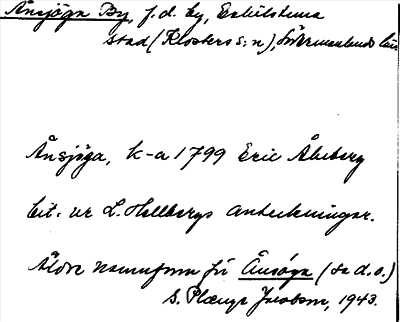 Ånsjöga By, f.d. by, Eskilstuna
stad (Klosters s:n), Södermanlands län
Ånsjöga, k-a 1799 Eric Åkeberg
cit. ur L. Hellbergs anteckningar.
Äldre namnform för Ånsöga (se d.o.)
S. Plænge Jacobson, 1943.